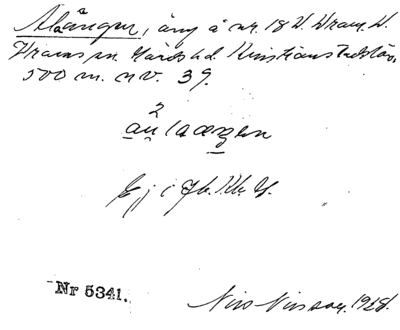 Ålaängen, äng å nr. 18 V. Vram, V.
Vrams sn. Gärds hd. Kristianstads län,
500 m. n v. 39.
2
au la ægen
Ej i Jb. Kb. Gb.
Nr 5341.
Nils Nilsson. 1928.